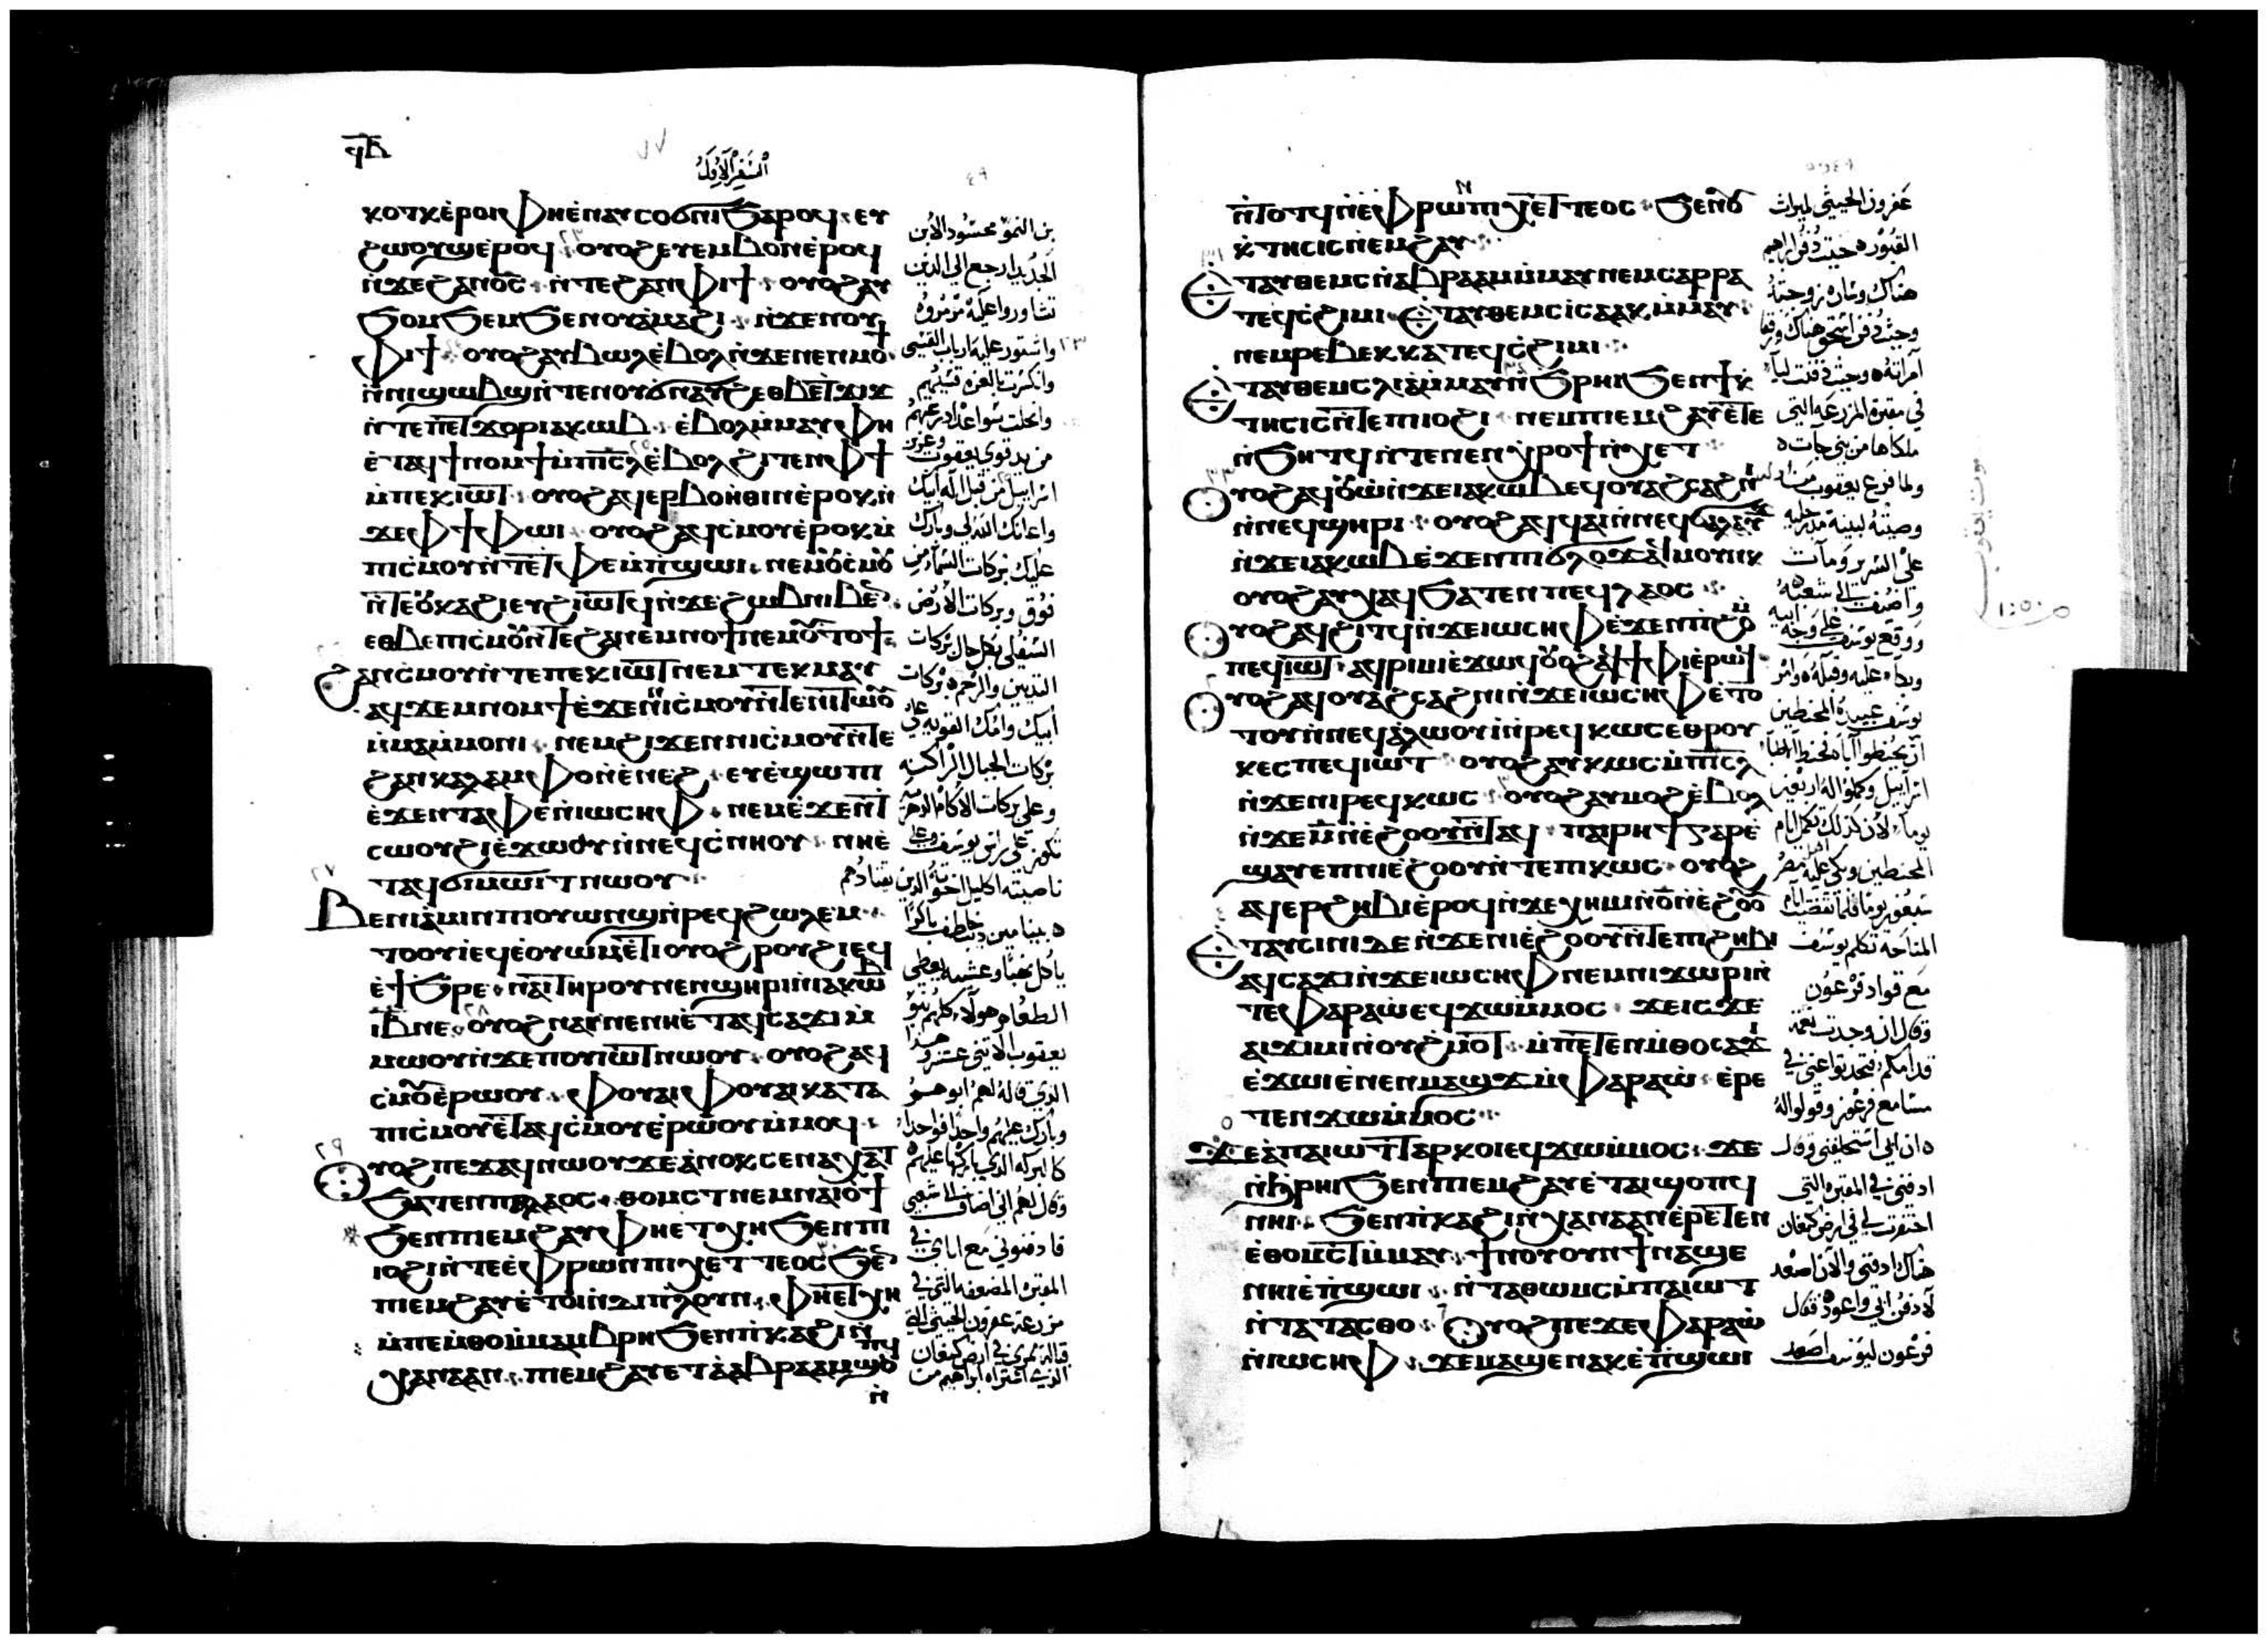 ϥⲃ
السفر الاول
ⲕⲟⲧⲕ ⲉ̀ⲣⲟⲓ ⲫⲏ ⲉ̀ⲛⲁⲩⲥⲟϭⲛⲓ ϧⲁⲣⲟϥ ⲉⲩ
ϩⲱⲟⲩϣ ⲉ̀ⲣⲟϥ ⲟⲩⲟϩ ⲉⲩⲉⲙⲃⲟⲛ ⲉ̀ⲣⲟϥ
ⲛ̀ϫⲉ ϩⲁⲛⲟ̄ⲥ̄ ⲛ̀ⲧⲉ ϩⲁⲛⲫⲓϯ ⲟⲩⲟϩ ⲁⲩ
ϧⲟⲙϧⲉⲙ ϧⲉⲛ ⲟⲩⲁ̀ⲙⲁϩⲓ ⲛ̀ϫⲉ ⲛⲟⲩ
ⲫⲓϯ ⲟⲩⲟϩ ⲁⲩⲃⲱⲗ ⲉ̀ⲃⲟⲗ ⲛ̀ϫⲉ ⲛⲉⲛⲙⲟϯ
ⲛ̀ⲛⲓϣⲱⲃϣ ⲛ̀ⲧⲉ ⲛⲟⲩϭⲛⲁⲩϩ ⲉⲑⲃⲉ ⲧϫⲓϫ
ⲛ̀ⲧⲉ ⲡⲉⲧϫⲟⲣ ⲓⲁⲕⲱⲃ ⲉ̀ⲃⲟⲗ ⲙ̀ⲙⲁⲩ ⲫⲏ
ⲉ̀ⲧⲁϥϯⲛⲟⲙϯ ⲙ̀ⲡⲓⲥ̄ⲗ̄ ⲉ̀ⲃⲟⲗ ϩⲓⲧⲉⲛ ⲫϯ
ⲙ̀ⲡⲉⲕⲓⲱⲧ ⲟⲩⲟϩ ⲁϥⲉⲣⲃⲟⲏⲑⲓⲛ ⲉ̀ⲣⲟⲕ ⲛ̀
ϫⲉ ⲫϯ ⲫⲱⲓ ⲟⲩⲟϩ ⲁϥⲥ̀ⲙⲟⲩ ⲉ̀ⲣⲟⲕ ⲙ̀
ⲡⲓⲥ̀ⲙⲟⲩ ⲛ̀ⲧⲉ ⲧⲫⲉ ⲙ̀ⲡ̀ϣⲱⲓ ⲛⲉⲙ ⲟⲩⲥ̀ⲙⲟⲩ
ⲛ̀ⲧⲉ ⲟⲩⲕⲁϩⲓ ⲉⲩϩⲓⲱⲧϥ ⲛ̀ϫⲉ ϩⲱⲃ ⲛⲓⲃⲉⲛ
ⲉⲑⲃⲉ ⲡⲓⲥ̀ⲙⲟⲩ ⲛ̀ⲧⲉ ϩⲁⲛⲉⲙⲛⲟϯ ⲛⲉⲙ ⲟⲩⲧⲟϯ
ϩⲁⲛⲥ̀ⲙⲟⲩ ⲛ̀ⲧⲉ ⲡⲉⲕⲓⲱⲧ ⲛⲉⲙ ⲧⲉⲕⲙⲁⲩ
ⲁϥϫⲉⲙⲛⲟⲙϯ ⲉ̀ϫⲉⲛ ⲛⲓⲥ̀ⲙⲟⲩ ⲛ̀ⲧⲉ ⲛⲓⲧⲱⲟⲩ
ⲙ̀ⲙⲁⲙ̀ⲙⲟⲛⲓ ⲛⲉⲙ ϩⲓϫⲉⲛ ⲛⲓⲥ̀ⲙⲟⲩ ⲛ̀ⲧⲉ
ϩⲁⲛⲕⲁⲗⲁⲙⲫⲟ ⲛ̀ⲉ̀ⲛⲉϩ ⲉⲩⲉ̀ϣⲱⲡⲓ
ⲉ̀ϫⲉⲛ ⲧⲁⲫⲉ ⲛ̀ⲓⲱⲥⲏⲫ ⲛⲉⲙ ⲉ̀ϫⲉⲛ ⲧ
ⲥⲱⲟⲩϩⲓ ⲉ̀ϫⲱⲟⲩ ⲛ̀ⲛⲉϥⲥ̀ⲛⲏⲟⲩ ⲛⲏ ⲉ̀
ⲧⲁϥϭⲓⲙⲱⲓⲧ ⲛⲱⲟⲩ
ⲃⲉⲛⲓⲁ̀ⲙⲓⲛ ⲡⲓⲟⲩⲱⲛϣ ⲛ̀ⲣⲉϥϩⲱⲗⲉⲙ
ⲧⲟⲟⲩⲓ̀ ⲉϥⲉ̀ⲟⲩⲱⲙ ⲉ̀ⲧⲓ ⲟⲩⲟϩ ⲣⲟⲩϩⲓ ⲉϥ
ⲉ̀ϯϧⲣⲉ ⲛⲁⲓ ⲧⲏⲣⲟⲩ ⲛⲉ ⲛⲉⲛϣⲏⲣⲓ ⲛ̀ⲓⲁⲕⲱⲃ
ⲓ̄ⲃ̄ ⲛⲉ ⲟⲩⲟϩ ⲛⲁⲓ ⲛⲉ ⲛⲏ ⲉ̀ⲧⲁϥⲥⲁϫⲓ ⲙ̀
ⲙⲱⲟⲩ ⲛ̀ϫⲉ ⲡⲟⲩⲓⲱⲧ ⲛⲱⲟⲩ ⲟⲩⲟϩ ⲁϥ
ⲥ̀ⲙⲟⲩ ⲉ̀ⲣⲱⲟⲩ ⲫⲟⲩⲁⲓ ⲫⲟⲩⲁⲓ ⲕⲁⲧⲁ
ⲡⲓⲥ̀ⲙⲟⲩ ⲉ̀ⲧⲁϥⲥ̀ⲙⲟⲩ ⲉ̀ⲣⲱⲟⲩ ⲙ̀ⲙⲟϥ
ⲟⲩⲟϩ ⲡⲉϫⲁϥ ⲛⲱⲟⲩ ϫⲉ ⲁ̀ⲛⲟⲕ ⲥⲉⲛⲁⲭⲁⲧ
ϧⲁⲧⲉⲛ ⲡⲁⲗⲁⲟⲥ ⲑⲟⲙⲥⲧ ⲛⲉⲙ ⲛⲁⲓⲟϯ
ϧⲉⲛ ⲡⲓⲉⲙϩⲁⲩ ⲫⲏ ⲉⲧⲭⲏ ϧⲉⲛ ⲡⲓ
ⲓⲟϩⲓ ⲛ̀ⲧⲉ ⲉ̀ⲫⲣⲱⲛ ⲡⲓⲭⲉⲧⲧⲉⲟⲥ ϧⲉⲛ
ⲡⲓⲉⲙϩⲁⲩ ⲉ̀ⲧⲟⲓ ⲛ̀ⲇⲓⲡⲗⲟⲩⲛ ⲫⲏ ⲉⲧⲭⲏ
ⲙ̀ⲡⲉⲙ̀ⲑⲟ ⲙ̀ⲙⲁⲙⲃⲣⲏ ϧⲉⲛ ⲡ̀ⲕⲁϩⲓ ⲛ̀
ⲭⲁⲛⲁⲁⲛ ⲡⲓⲉⲙϩⲁⲩ ⲉⲧⲁ ⲁ̀ⲃⲣⲁⲁⲙ ϣⲟⲡϥ
ⲛ̀
بن النمو محسود الابن
الجديد ارجع الي الذين
تشاوروا عليه مرمروه
واستور عليه ارباب القسي
وانكسرت بالعزه قسيهم
وانحلت سواعد ادرعهم
من يد قوي يعقوب وعزيز
اسراييل من قبل اله ابيك
واعانك الله لي وبارك
عليك بركات السما من
فوق وبركات الارض
السفلي بكل حال بركات
الثديين والرحم بركات
ابيك وامك القويه علي
بركات الجبال الراكبه
وعلي بركات الاكام الدهريه
تكون علي راس يوسف وعلي
ناصيته اكليل اخوته الذين يقتادهم
بنيامين ذيب خاطف باكرا
ياكل نهبا وعشيه يعطي
الطعام هولاء كلهم بنو
يعقوب الاثني عشر وهذا
الذي قاله لهم ابوهم
وبارك عليهم واحدا فواحدا
كالبركه الذي باركها عليهم
وقال لهم اني اضاف الي شعبي
فادفنوني مع ابايي في
المقبره المضعفه التي في
مزرعة عفرون الحيثي التي
قبالة ممري في ارض كنعان
الذي اشتراه ابراهيم من
ⲛ̀ⲧⲟⲧϥ ⲛ̀ⲉ̀ⲫⲣⲱⲛ ⲡⲓⲭⲉⲧⲧⲉⲟⲥ ϧⲉⲛ ⲟⲩ
ⲕ̀ⲧⲏⲥⲓⲥ ⲛ̀ⲉⲙϩⲁⲩ
ⲉ̀ⲧⲁⲩⲑⲉⲙⲥ ⲛ̀ⲁⲃⲣⲁⲁⲙ ⲙ̀ⲙⲁⲩ ⲛⲉⲙ ⲥⲁⲣⲣⲁ
ⲧⲉϥⲥ̀ϩⲓⲙⲓ ⲉ̀ⲧⲁⲩⲑⲉⲙⲥ ⲓⲥⲁⲁⲕ ⲙ̀ⲙⲁⲩ
ⲛⲉⲙ ⲣⲉⲃⲉⲕⲕⲁ ⲧⲉϥⲥ̀ϩⲓⲙⲓ
ⲉ̀ⲧⲁⲩⲑⲉⲙⲥ ⲗⲓⲁ̀ ⲙ̀ⲙⲁⲩ ⲛ̀ϧⲣⲏⲓ ϧⲉⲛ ϯⲕ̀
ⲧⲏⲥⲓⲥ ⲛ̀ⲧⲉ ⲡⲓⲟϩⲓ ⲛⲉⲙ ⲡⲓⲉⲙϩⲁⲩ ⲉ̀ⲧⲉ
ⲛ̀ϧⲏⲧϥ ⲛ̀ⲧⲉ ⲛⲉⲛϣⲣⲟϯ ⲛ̀ⲭⲉⲧ
ⲟⲩⲟϩ ⲁϥⲟⲩⲱ̀ ⲛ̀ϫⲉ ⲓⲁⲕⲱⲃ ⲉϥⲟⲩⲁϩⲥⲁϩⲛⲓ
ⲛ̀ⲛⲉϥϣⲏⲣⲓ ⲟⲩⲟϩ ⲁϥϥⲁⲓ ⲛ̀ⲛⲉϥϭⲁⲗⲁⲩϫ
ⲛ̀ϫⲉ ⲓⲁⲕⲱⲃ ⲉ̀ϫⲉⲛ ⲡⲓϭⲗⲟϫ ⲁϥⲙⲟⲩⲛⲕ
ⲟⲩⲟϩ ⲁⲩⲭⲁϥ ϧⲁⲧⲉⲛ ⲡⲉϥⲗⲁⲟⲥ
ⲟⲩⲟϩ ⲁϥϩⲓⲧϥ ⲛ̀ϫⲉ ⲓⲱⲥⲏⲫ ⲉ̀ϫⲉⲛ ⲡ̀ϩⲟ ⲙ̀
ⲡⲉϥⲓⲱⲧ ⲁϥⲣⲓⲙⲓ ⲉ̀ϫⲱϥ ⲟⲩⲟϩ ⲁϥϯⲫⲓ ⲉ̀ⲣⲱϥ
ⲟⲩⲟϩ ⲁϥⲟⲩⲁϩⲥⲁϩⲛⲓ ⲛ̀ϫⲉ ⲓⲱⲥⲏⲫ ⲉ̀ⲧⲟ
ⲧⲟⲩ ⲛ̀ⲛⲉϥⲁ̀ⲗⲱⲟⲩⲓ̀ ⲛ̀ⲣⲉϥⲕⲱⲥ ⲉⲑⲣⲟⲩ
ⲕⲉⲥ ⲡⲉϥⲓⲱⲧ ⲟⲩⲟϩ ⲁⲩⲕⲱⲥ ⲙ̀ⲡⲓⲥ̄ⲗ̄
ⲛ̀ϫⲉ ⲛⲓⲣⲉϥⲕⲱⲥ ⲟⲩⲟϩ ⲁⲩⲙⲟϩ ⲉ̀ⲃⲟⲗ
ⲛ̀ϫⲉ ⲙ̄ ⲛ̀ⲉ̀ϩⲟⲟⲩ ⲛ̀ⲧⲁϥ ⲡⲁⲓⲣⲏϯ ⲅⲁⲣ ⲉ̀
ϣⲁⲩⲉⲡ ⲛⲓⲉ̀ϩⲟⲟⲩ ⲛ̀ⲧⲉ ⲡⲓⲕⲱⲥ ⲟⲩⲟϩ
ⲁϥⲉⲣϩⲏⲃⲓ ⲉ̀ⲣⲟϥ ⲛ̀ϫⲉ ⲭⲏⲙⲓ ⲛ̀ⲟ̄ ⲛ̀ⲉ̀ϩⲟⲟⲩ
ⲉ̀ⲧⲁⲩⲥⲓⲛⲓ ⲇⲉ ⲛ̀ϫⲉ ⲛⲓⲉ̀ϩⲟⲟⲩ ⲛ̀ⲧⲉ ⲡⲓϩⲏⲃⲓ
ⲁϥⲥⲁϫⲓ ⲛ̀ϫⲉ ⲓⲱⲥⲏⲫ ⲛⲉⲙ ⲛⲓϫⲱⲣⲓ ⲛ̀
ⲧⲉ ⲫⲁⲣⲁⲱ̀ ⲉϥϫⲱ ⲙ̀ⲙⲟⲥ ϫⲉ ⲓⲥϫⲉ
ⲁⲓϫⲓⲙⲓ ⲛ̀ⲟⲩϩⲙⲟⲧ ⲙ̀ⲡⲉⲧⲉⲛⲙ̀ⲑⲟ ⲥⲁϫⲓ
ⲉ̀ϫⲱⲓ ⲉ̀ⲛⲉⲛⲙⲁϣϫ ⲙ̀ⲫⲁⲣⲁⲱ̀ ⲉ̀ⲣⲉ
ⲧⲉⲛϫⲱ ⲙ̀ⲙⲟⲥ
ϫⲉ ⲁ̀ ⲡⲁⲓⲱⲧ ⲧⲁⲣⲕⲟⲓ ⲉϥϫⲱ ⲙ̀ⲙⲟⲥ ϫⲉ
ⲛ̀ϩⲣⲏⲓ ϧⲉⲛ ⲡⲓⲉⲙϩⲁⲩ ⲉ̀ⲧⲁⲓϣⲟⲡϥ
ⲛⲏⲓ ϧⲉⲛ ⲡ̀ⲕⲁϩⲓ ⲛ̀ⲭⲁⲛⲁⲁⲛ ⲉ̀ⲣⲉⲧⲉⲛ
ⲉ̀ⲑⲟⲙⲥⲧ ⲙ̀ⲙⲁⲩ ϯⲛⲟⲩ ⲟⲩⲛ ϯⲛⲁϣⲉ
ⲛⲏⲓ ⲉ̀ⲡ̀ϣⲱⲓ ⲛ̀ⲧⲁⲑⲱⲙⲥ ⲙ̀ⲡⲁⲓⲱⲧ
ⲛ̀ⲧⲁⲧⲁⲥⲑⲟ ⲟⲩⲟϩ ⲡⲉϫⲉ ⲫⲁⲣⲁⲱ̀
ⲛ̀ⲓⲱⲥⲏⲫ ϫⲉ ⲙⲁϣⲉⲛⲁⲕ ⲉ̀ⲡ̀ϣⲱⲓ
عفرون الحيثي لميراث
القبور حيث دفن ابراهيم
هناك وساره زوجته
وحيث دفن اسحق هناك ورفقا
امراته وحيث دفنت ليا
في مقبرة المزرعه التي
ملكاها من بني حات
ولما فرغ يعقوب من
وصيته لبنيه مد رجليه
علي السرير ومات
واضيف الي شعبه
ووقع يوسف علي وجه ابيه
وبكاء عليه وقبله وامر
يوسف عبيده المحنطين
ان يحنطوا اباه فحنط الاطبا
اسراييل وكملوا له اربعين
يوما لان كذلك تكمل ايام
المحنطين وبكي عليه اهل مصر
سبعون يوما فلما انقضت ايام
المناحه تكلم يوسف
مع قواد فرعون
وقال ان وجدت نعمة
قدامكم فتحدثوا عني في
مسامع فرعون وقولوا له
ان ابي استحلفني وقال
ادفني في المقبره التي
احتفرت لي في ارض كنعان
هناك ادفني والان اصعد
لادفن ابي واعود فقال
فرعون ليوسف اصعد